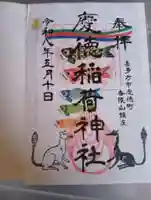 奉拝
喜多方市慶徳町
慶徳稲荷神社
令和八年五月十日